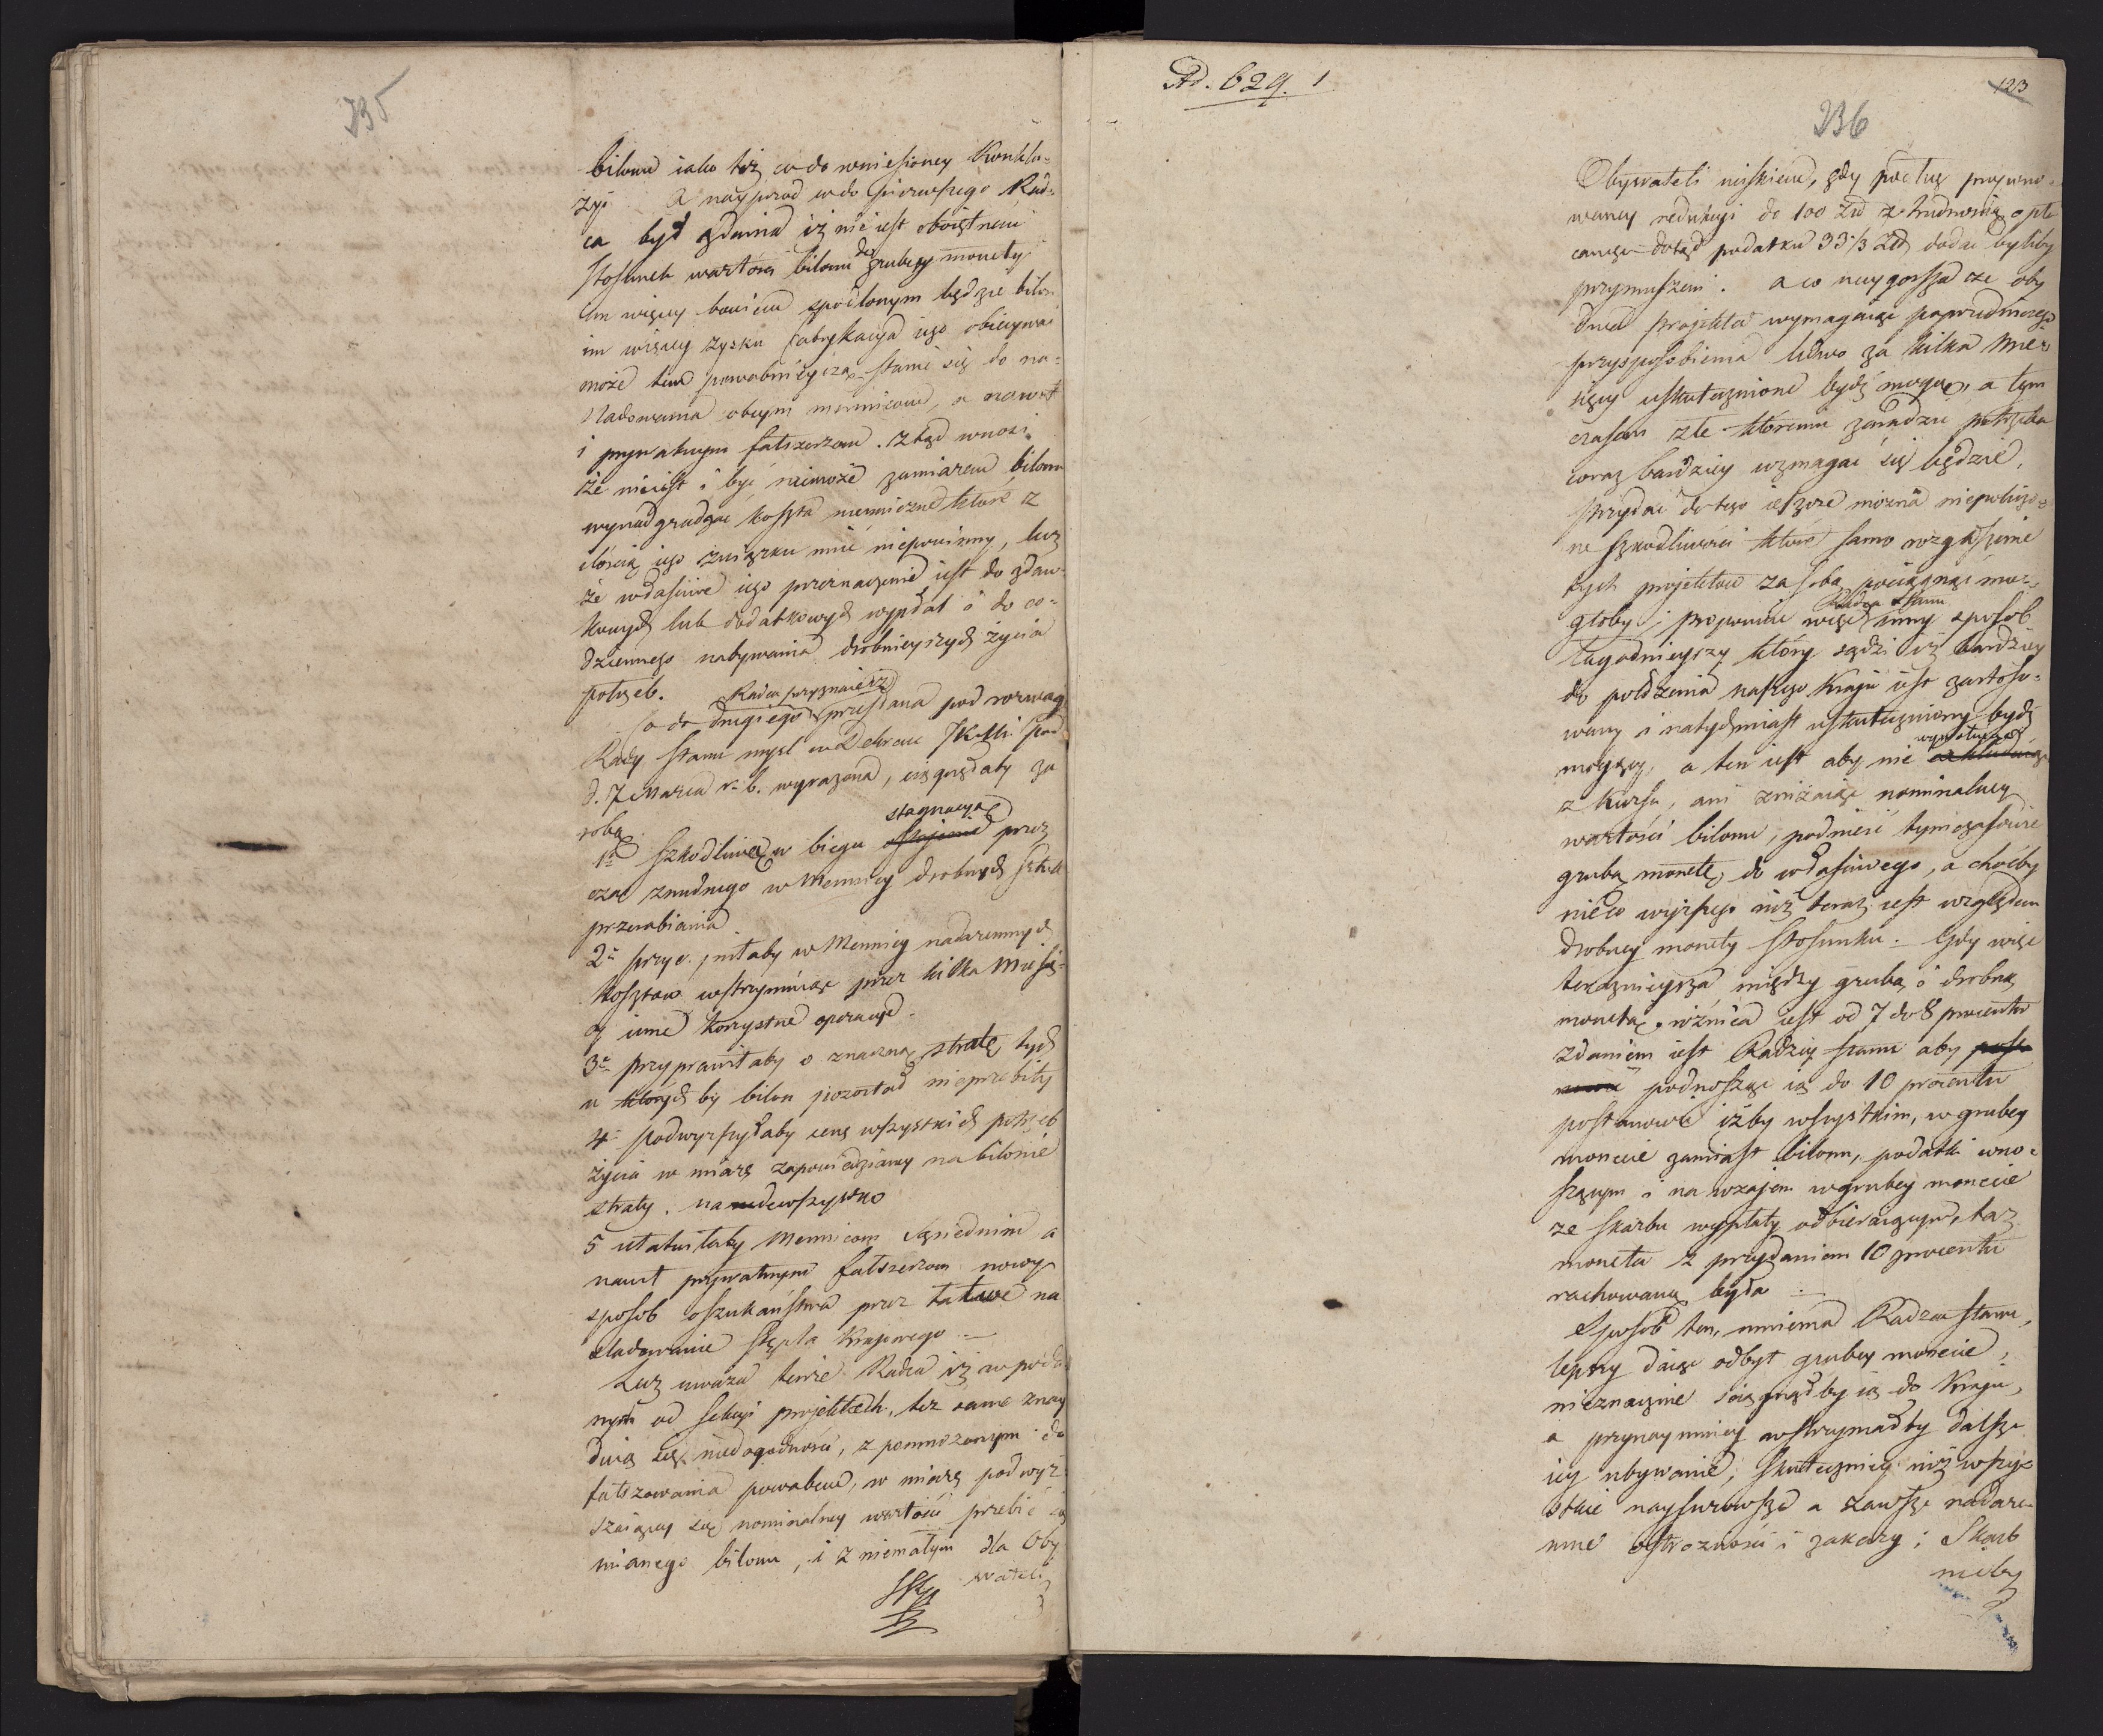 235
bilonu iako też co do wniesioney Konklu=
zyi. A nayprzod co do pierwszego Rad=
ca był zdania iż nie iest oboiętnem
stosunek wartosci bilonu do grubey monety
im więcey bowiem spodlonym będzie bilon
im więcey zysku fabrykacya iego obiecywać
może tem powabnieyszą stanie się do na=
sladowania obcym mennicom, a nawet
i prywatnym fałszerzom. Ztąd wnosi
że nie iest i być niemoże zamiarem bilonu
wynadgradzać koszta mennicze które z
ilością iego związku mieć niepowinny, lecz
że własciwe iego przeznaczenie iest do zdaw=
kowych lub dodatkowych wypłat i do co=
dziennego nabywania drobnieyszych życia
potrzeb.
Radca przyznaie iż
Co do drugiego przesłana pod rozwagę
Rady Stanu mysl w Dekrecie JKMci pod
d. 7 Marca r. b. wyrażona, ciągnęłaby za
sobą
1° Szkodliwą w biegu stagnacyą przez
czas żmudnego w Mennicy drobnych sztuk
przerabiania.
2° przy mnóstwie w Mennicy nadaremnych
kosztow wstrzymuiąc przez kilka Miesię=
cy inne korzystne operacye.
3° przyprawiłaby o znaczną stratę tych
u których by bilon pozostał nieprzebity
4° podwyższyłaby cenę wszystkich potrzeb
życia w miarę zapowiedzianey na bilonie
straty. nadewszystko
5 ułatwiłaby Mennicom Sąsiednim a
nawet prywatnym fałszerzom nowy
sposob oszukaństwa przez łatwe na
sladowanie stępla Kraiowego. —
Lecz uważa tenże Radca iż w poda
nych od Sekcyi projektach, też same znay
duią się niedogodności, z pomnożonym do
fałszowania powabem, w miarę podwyż
szaiącey się nominalney wartości przebić się
mianego bilonu, i z niemałym dla Oby
wateli
Ad. 629. 1
123
236
Obywateli uciskiem, gdy podług proiekto=
waney redukcyi do 100 Złł z trudnością opła
canego dotąd podatku 33⅓ Złł dodać byliby
przymuszeni. A co naygorsza że oby
dwa projekta wymagaiąc poprzedniczego
przysposobienia ledwo za kilka Mie=
sięcy uskutecznione bydź mogą, a tym
czasem złe któremu zaradzić potrzeba
coraz bardziey wzmagać się będzie,
Przydać do tego ieszcze można niepoliczo=
ne szkodliwości które samo ogłoszenie
tych projektow za sobą pociągnąć mo=
głoby; proponuie więc Radca Stanu inny sposob
łagodnieyszy który sądzi iż bardziey
do położenia naszego Kraju iest zastoso=
wany i natychmiast uskuteczniony bydź
mogący, a ten iest aby nie wywołuiąc
z kursu, ani zniżaiąc nominalney
wartości bilonu, podnieść tymczasowie
grubą monetę do własciwego, a choćby
nieco wyższego niż teraz iest względem
drobney monety stosunku. — Gdy więc
teraznieysza między grubą i drobną
monetą rożnica iest od 7 do 8 procentu
zdaniem iest Radcy Stanu aby
podnosząc ią do 10 procentu
postanowić iżby wszystkim, w grubey
monecie zamiast bilonu, podatki wno=
szącym i na wzajem w grubey monecie
ze skarbu wypłaty odbieraiącym, taż
moneta z przydaniem 10 procentu
rachowaną była. —
Sposob ten, mniema Radca Stanu,
lepszy daiąc odbyt grubey monecie,
nieznacznie sciągnąłby ią do Kraju,
a przynaymniey wstrzymałby dalsze
iey ubywanie, skuteczniey niż wszy=
stkie naysurowsze a zawsze nadare=
mne ostrożności i zakazy; Skarb
nieby